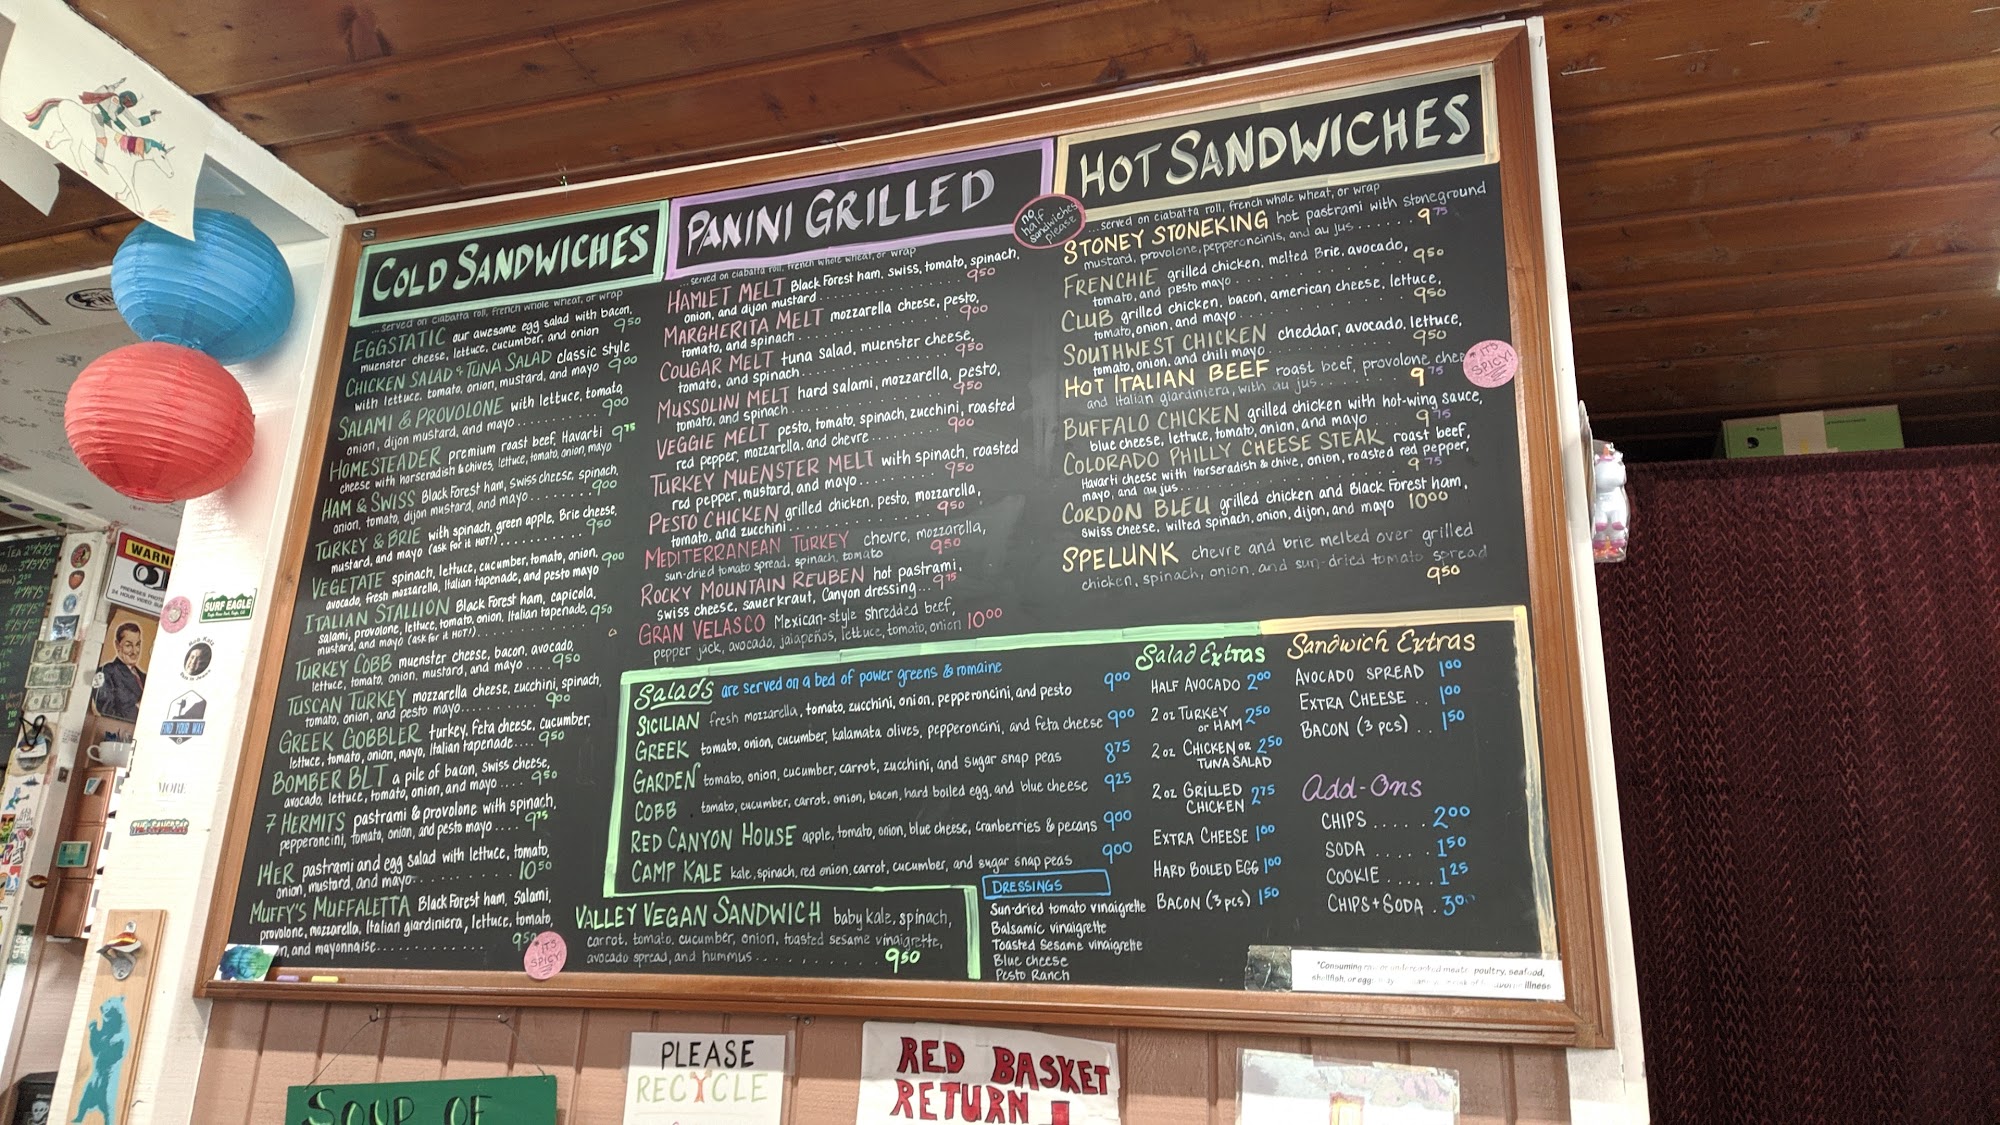 COLD SANDWICHES
...served on ciabatta roll, french whole wheat, or wrap
EGGSTATIC our awesome egg salad with bacon,
muenster cheese, lettuce, cucumber, and onion 9⁵⁰
CHICKEN SALAD & TUNA SALAD classic style
with lettuce, tomato, onion, mustard, and mayo 9⁰⁰
SALAMI & PROVOLONE with lettuce, tomato,
onion, dijon mustard, and mayo........ 9⁰⁰
HOMESTEADER premium roast beef, Havarti 9⁷⁵
cheese with horseradish & chives, lettuce, tomato, onion, mayo
HAM & SWISS Black Forest ham, swiss cheese, spinach,
onion, tomato, dijon mustard, and mayo........ 9⁰⁰
TURKEY & BRIE with spinach, green apple, Brie cheese,
mustard, and mayo (ask for it HOT!)........ 9⁵⁰
VEGETATE spinach, lettuce, cucumber, tomato, onion, 9⁰⁰
avocado, fresh mozzarella, Italian tapenade, and pesto mayo
ITALIAN STALLION Black Forest ham, capicola,
salami, provolone, lettuce, tomato, onion, Italian tapenade, 9⁵⁰
mustard, and mayo (ask for it HOT!)........
TURKEY COBB muenster cheese, bacon, avocado,
lettuce, tomato, onion, mustard, and mayo.... 9⁵⁰
TUSCAN TURKEY mozzarella cheese, zucchini, spinach,
tomato, onion, and pesto mayo........ 9⁰⁰
GREEK GOBBLER turkey, feta cheese, cucumber,
lettuce, tomato, onion, mayo, Italian tapenade.... 9⁵⁰
BOMBER BLT a pile of bacon, swiss cheese,
avocado, lettuce, tomato, onion, and mayo.... 9⁵⁰
7 HERMITS pastrami & provolone with spinach,
pepperoncini, tomato, onion, and pesto mayo.... 9⁷⁵
14ER pastrami and egg salad with lettuce, tomato,
onion, mustard, and mayo........ 10⁵⁰
MUFFY'S MUFFALETTA Black Forest ham, salami,
provolone, mozzarella, Italian giardiniera, lettuce, tomato,
and mayonnaise........ 9⁵⁰
IT'S SPICY!
PANINI GRILLED
...served on ciabatta roll, french whole wheat, or wrap
HAMLET MELT Black Forest ham, swiss, tomato, spinach,
onion, and dijon mustard........ 9⁵⁰
MARGHERITA MELT mozzarella cheese, pesto,
tomato, and spinach........ 9⁰⁰
COUGAR MELT tuna salad, muenster cheese,
tomato, and spinach........ 9⁵⁰
MUSSOLINI MELT hard salami, mozzarella, pesto,
tomato, and spinach........ 9⁵⁰
VEGGIE MELT pesto, tomato, spinach, zucchini, roasted
red pepper, mozzarella, and chevre........ 9⁰⁰
TURKEY MUENSTER MELT with spinach, roasted
red pepper, mustard, and mayo........ 9⁵⁰
PESTO CHICKEN grilled chicken, pesto, mozzarella,
tomato, and zucchini........ 9⁵⁰
MEDITERRANEAN TURKEY chevre, mozzarella,
sun-dried tomato spread, spinach, tomato 9⁵⁰
ROCKY MOUNTAIN REUBEN hot pastrami,
swiss cheese, sauerkraut, Canyon dressing... 9⁷⁵
GRAN VELASCO Mexican-style shredded beef,
pepper jack, avocado, jalapeños, lettuce, tomato, onion 10⁰⁰
no half sandwiches please
HOT SANDWICHES
...served on ciabatta roll, french whole wheat, or wrap
STONEY STONEKING hot pastrami with stoneground
mustard, provolone, pepperoncinis, and au jus...... 9⁷⁵
FRENCHIE grilled chicken, melted Brie, avocado,
tomato, and pesto mayo........ 9⁵⁰
CLUB grilled chicken, bacon, american cheese, lettuce,
tomato, onion, and mayo........ 9⁵⁰
SOUTHWEST CHICKEN cheddar, avocado, lettuce,
tomato, onion, and chili mayo........ 9⁵⁰
HOT ITALIAN BEEF roast beef, provolone
and Italian giardiniera, with au jus...... 9⁷⁵
IT'S SPICY!
BUFFALO CHICKEN grilled chicken with hot-wing sauce,
blue cheese, lettuce, tomato, onion, and mayo 9⁷⁵
COLORADO PHILLY CHEESE STEAK roast beef,
Havarti cheese with horseradish & chive, onion, roasted red pepper,
mayo, and au jus........ 9⁷⁵
CORDON BLEU grilled chicken and Black Forest ham,
swiss cheese, wilted spinach, onion, dijon, and mayo 10⁰⁰
SPELUNK chevre and brie melted over grilled
chicken, spinach, onion, and sun-dried tomato spread
9⁵⁰
Salads are served on a bed of power greens & romaine
SICILIAN fresh mozzarella, tomato, zucchini, onion, pepperoncini, and pesto 9⁰⁰
GREEK tomato, onion, cucumber, kalamata olives, pepperoncini, and feta cheese 9⁰⁰
GARDEN tomato, onion, cucumber, carrot, zucchini, and sugar snap peas 8⁷⁵
COBB tomato, cucumber, carrot, onion, bacon, hard boiled egg, and blue cheese 9²⁵
RED CANYON HOUSE apple, tomato, onion, blue cheese, cranberries & pecans 9⁰⁰
CAMP KALE kale, spinach, red onion, carrot, cucumber, and sugar snap peas 9⁰⁰
VALLEY VEGAN SANDWICH baby kale, spinach,
carrot, tomato, cucumber, onion, toasted sesame vinaigrette,
avocado spread, and hummus........ 9⁵⁰
DRESSINGS
Sun-dried tomato vinaigrette
Balsamic vinaigrette
Toasted Sesame vinaigrette
Blue cheese
Pesto Ranch
Salad Extras
HALF AVOCADO 2⁰⁰
2 oz TURKEY
OR HAM 2⁵⁰
2 oz CHICKEN OR 2⁵⁰
TUNA SALAD
2 oz GRILLED
CHICKEN 2⁷⁵
EXTRA CHEESE 1⁰⁰
HARD BOILED EGG 1⁰⁰
BACON (3 pcs) 1⁵⁰
Sandwich Extras
AVOCADO SPREAD 1⁰⁰
EXTRA CHEESE .. 1⁰⁰
BACON (3 pcs) .. 1⁵⁰
Add-Ons
CHIPS ...... 2⁰⁰
SODA ..... 1⁵⁰
COOKIE ..... 1²⁵
CHIPS + SODA . 3⁰⁰
"Consuming raw or undercooked meats, poultry, seafood,
shellfish, or eggs illness
WARN
SURF EAGLE
FIND YOUR WAY
MORE
SOUP OF
PLEASE
RECYCLE
RED BASKET
RETURN